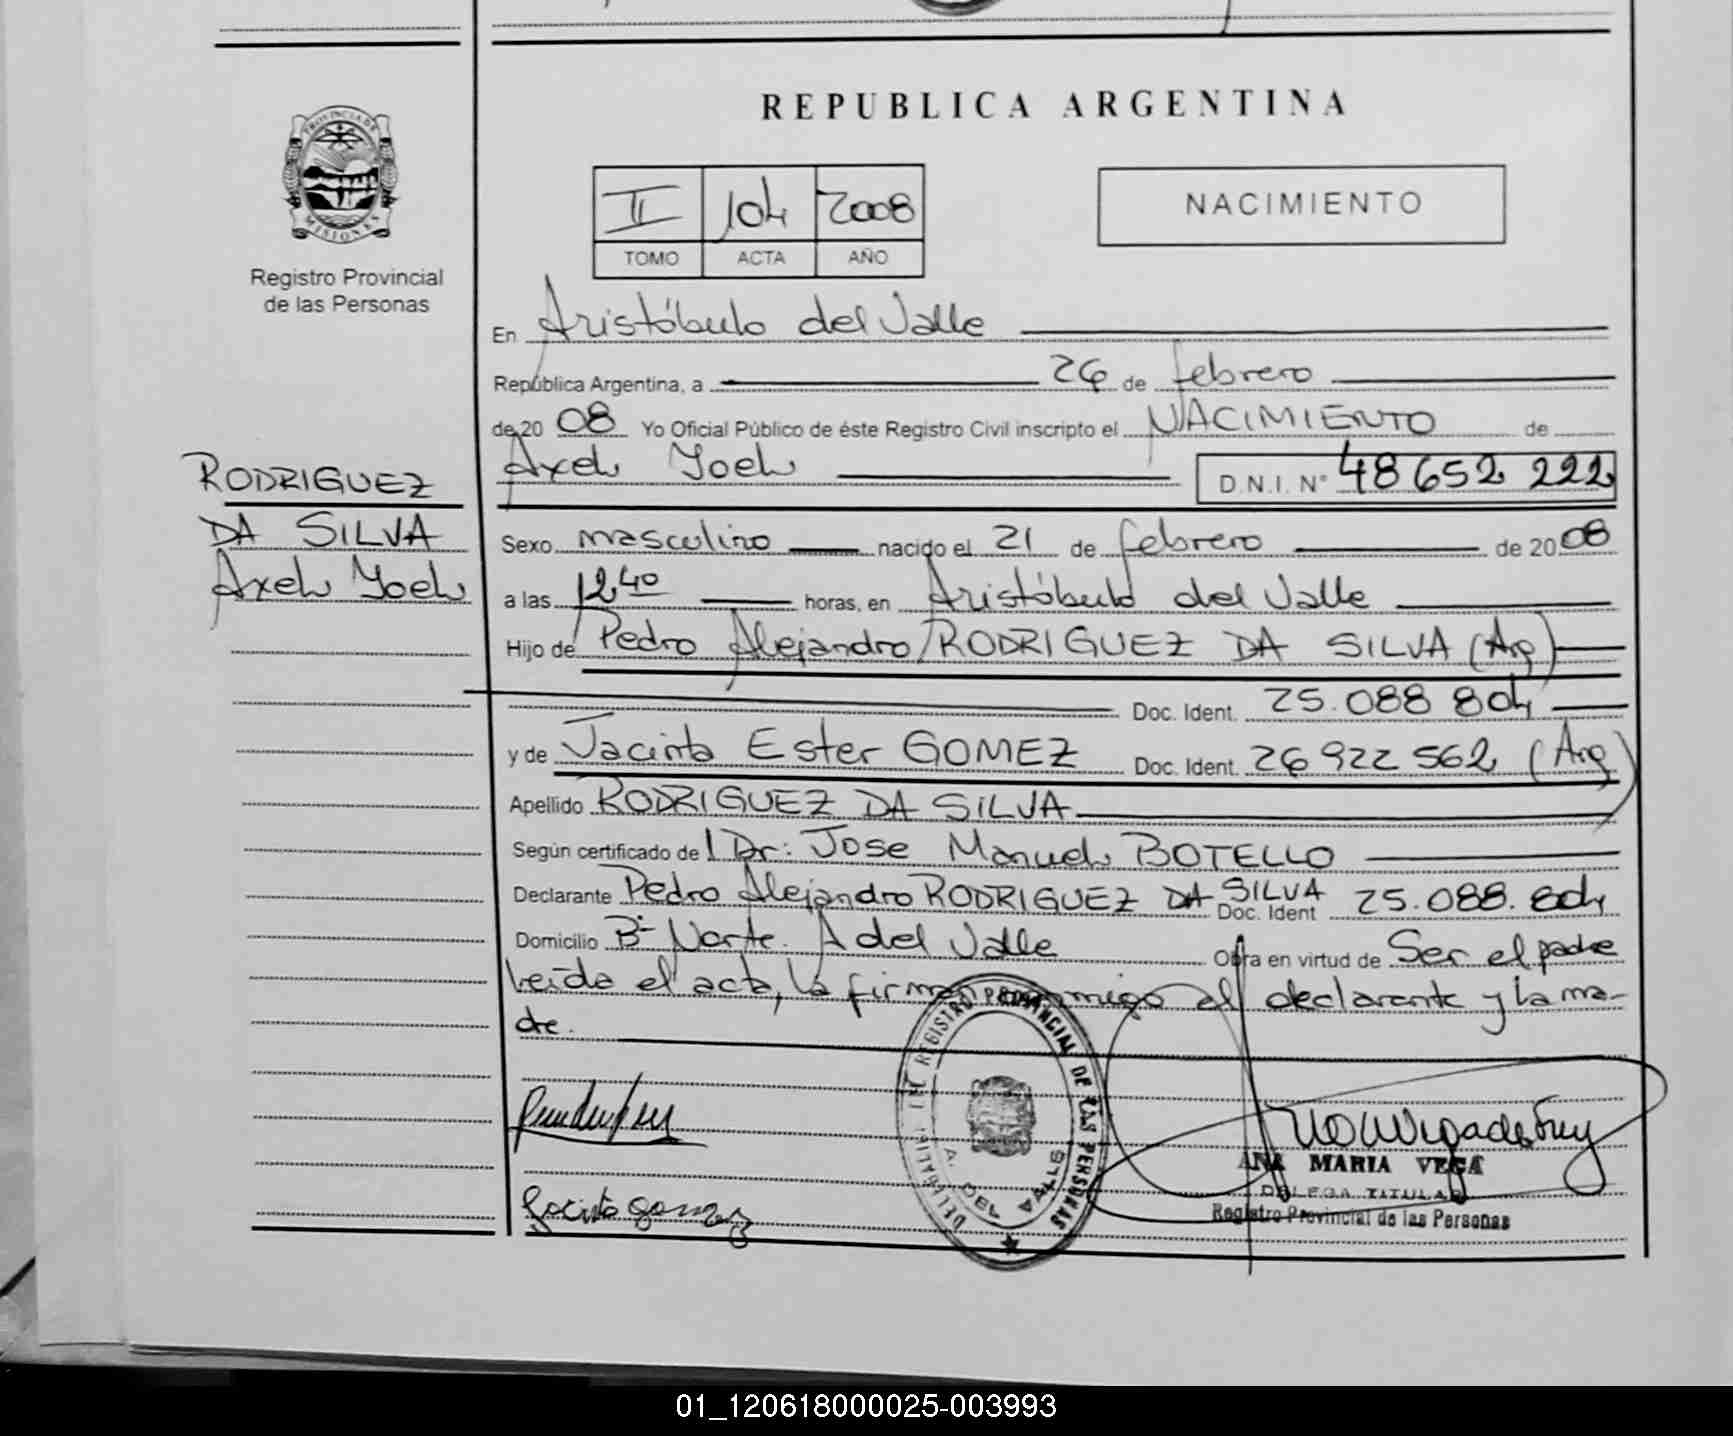 REPUBLICA ARGENTINA
PROVINCIA DE
MISIONES
Registro Provincial
de las Personas
II 104 2008
TOMO ACTA AÑO
NACIMIENTO
En Aristóbulo del Valle
República Argentina, a 26 de febrero
de 20 08 Yo Oficial Público de éste Registro Civil inscripto el NACIMIENTO de
Axel Yoel D.N.I. N° 48 652 222
RODRIGUEZ
DA SILVA
Axel Yoel
Sexo masculino nacido el 21 de febrero de 20 08
a las 12 40 horas, en Aristóbulo del Valle
Hijo de Pedro Alejandro RODRIGUEZ DA SILVA (Arg)
Doc. Ident. 25.088 804
y de Jacinta Ester GOMEZ Doc. Ident. 26 922 562 (Arg)
Apellido RODRIGUEZ DA SILVA
Según certificado de l Dr: Jose Manuel BOTELLO
Declarante Pedro Alejandro RODRIGUEZ DA SILVA Doc. Ident 25.088.804
Domicilio B° Norte. A del Valle Obra en virtud de Ser el padre
Leída el acta, la firman conmigo el declarante y la ma-
dre.
REGISTRO PROVINCIAL DE LAS PERSONAS
A. DEL VALLE
Jacinta Gomez
ANA MARIA VEGA
DELEGA TITULAR
Registro Provincial de las Personas
01_120618000025-003993